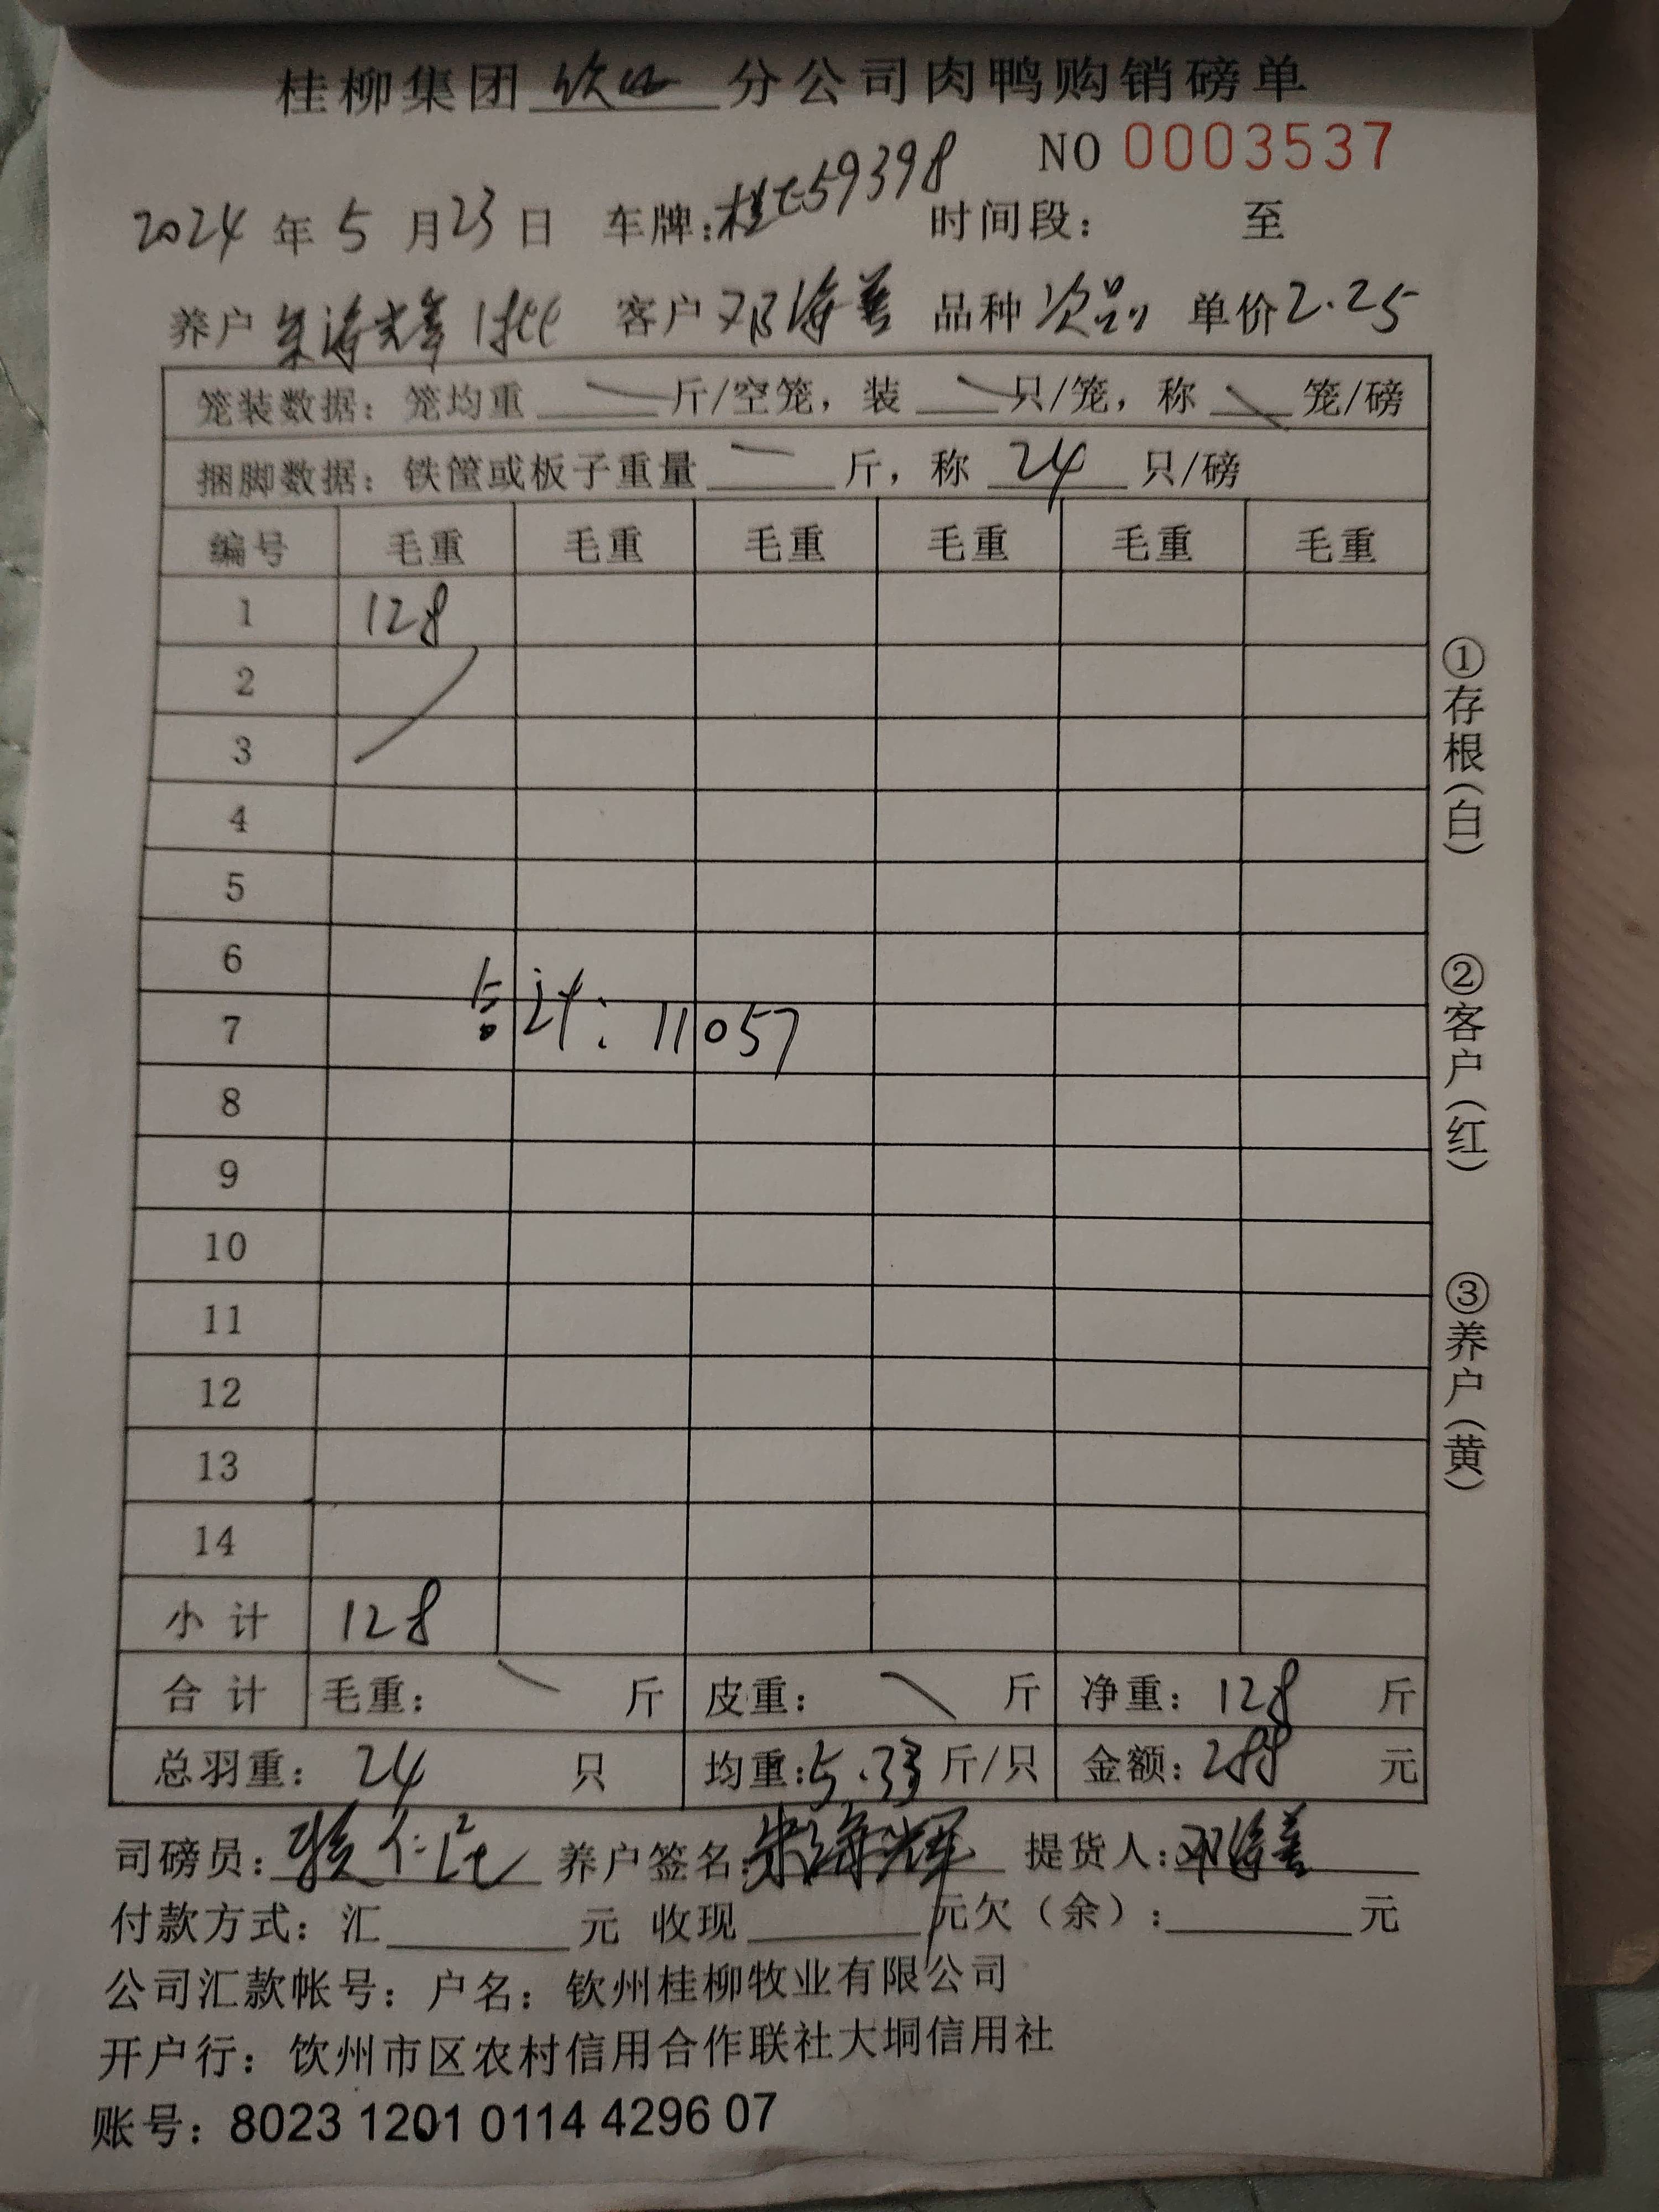 桂柳集团 钦州 分公司肉鸭购销磅单
NO 0003537
2024 年 5 月 23 日 车牌: 59398 时间段: 至
养户 朱海辉 客户 邓海善 品种 次品 单价 2.25
笼装数据: 笼均重 斤/空笼, 装 只/笼, 称 笼/磅
捆脚数据: 铁筐或板子重量 斤, 称 24 只/磅
编号 毛重 毛重 毛重 毛重 毛重 毛重
1 128
2
3
4
5
6
合计: 11057
7
8
9
10
11
12
13
14
小计 128
合计 毛重: 斤 皮重: 斤 净重: 128 斤
总羽重: 24 只 均重: 5.33 斤/只 金额: 288 元
司磅员: 养户签名: 朱海辉 提货人: 邓海善
付款方式: 汇 元 收现 元欠(余): 元
公司汇款帐号: 户名: 钦州桂柳牧业有限公司
开户行: 饮州市区农村信用合作联社大垌信用社
账号: 8023 1201 0114 4296 07
①存根(白)
②客户(红)
③养户(黄)